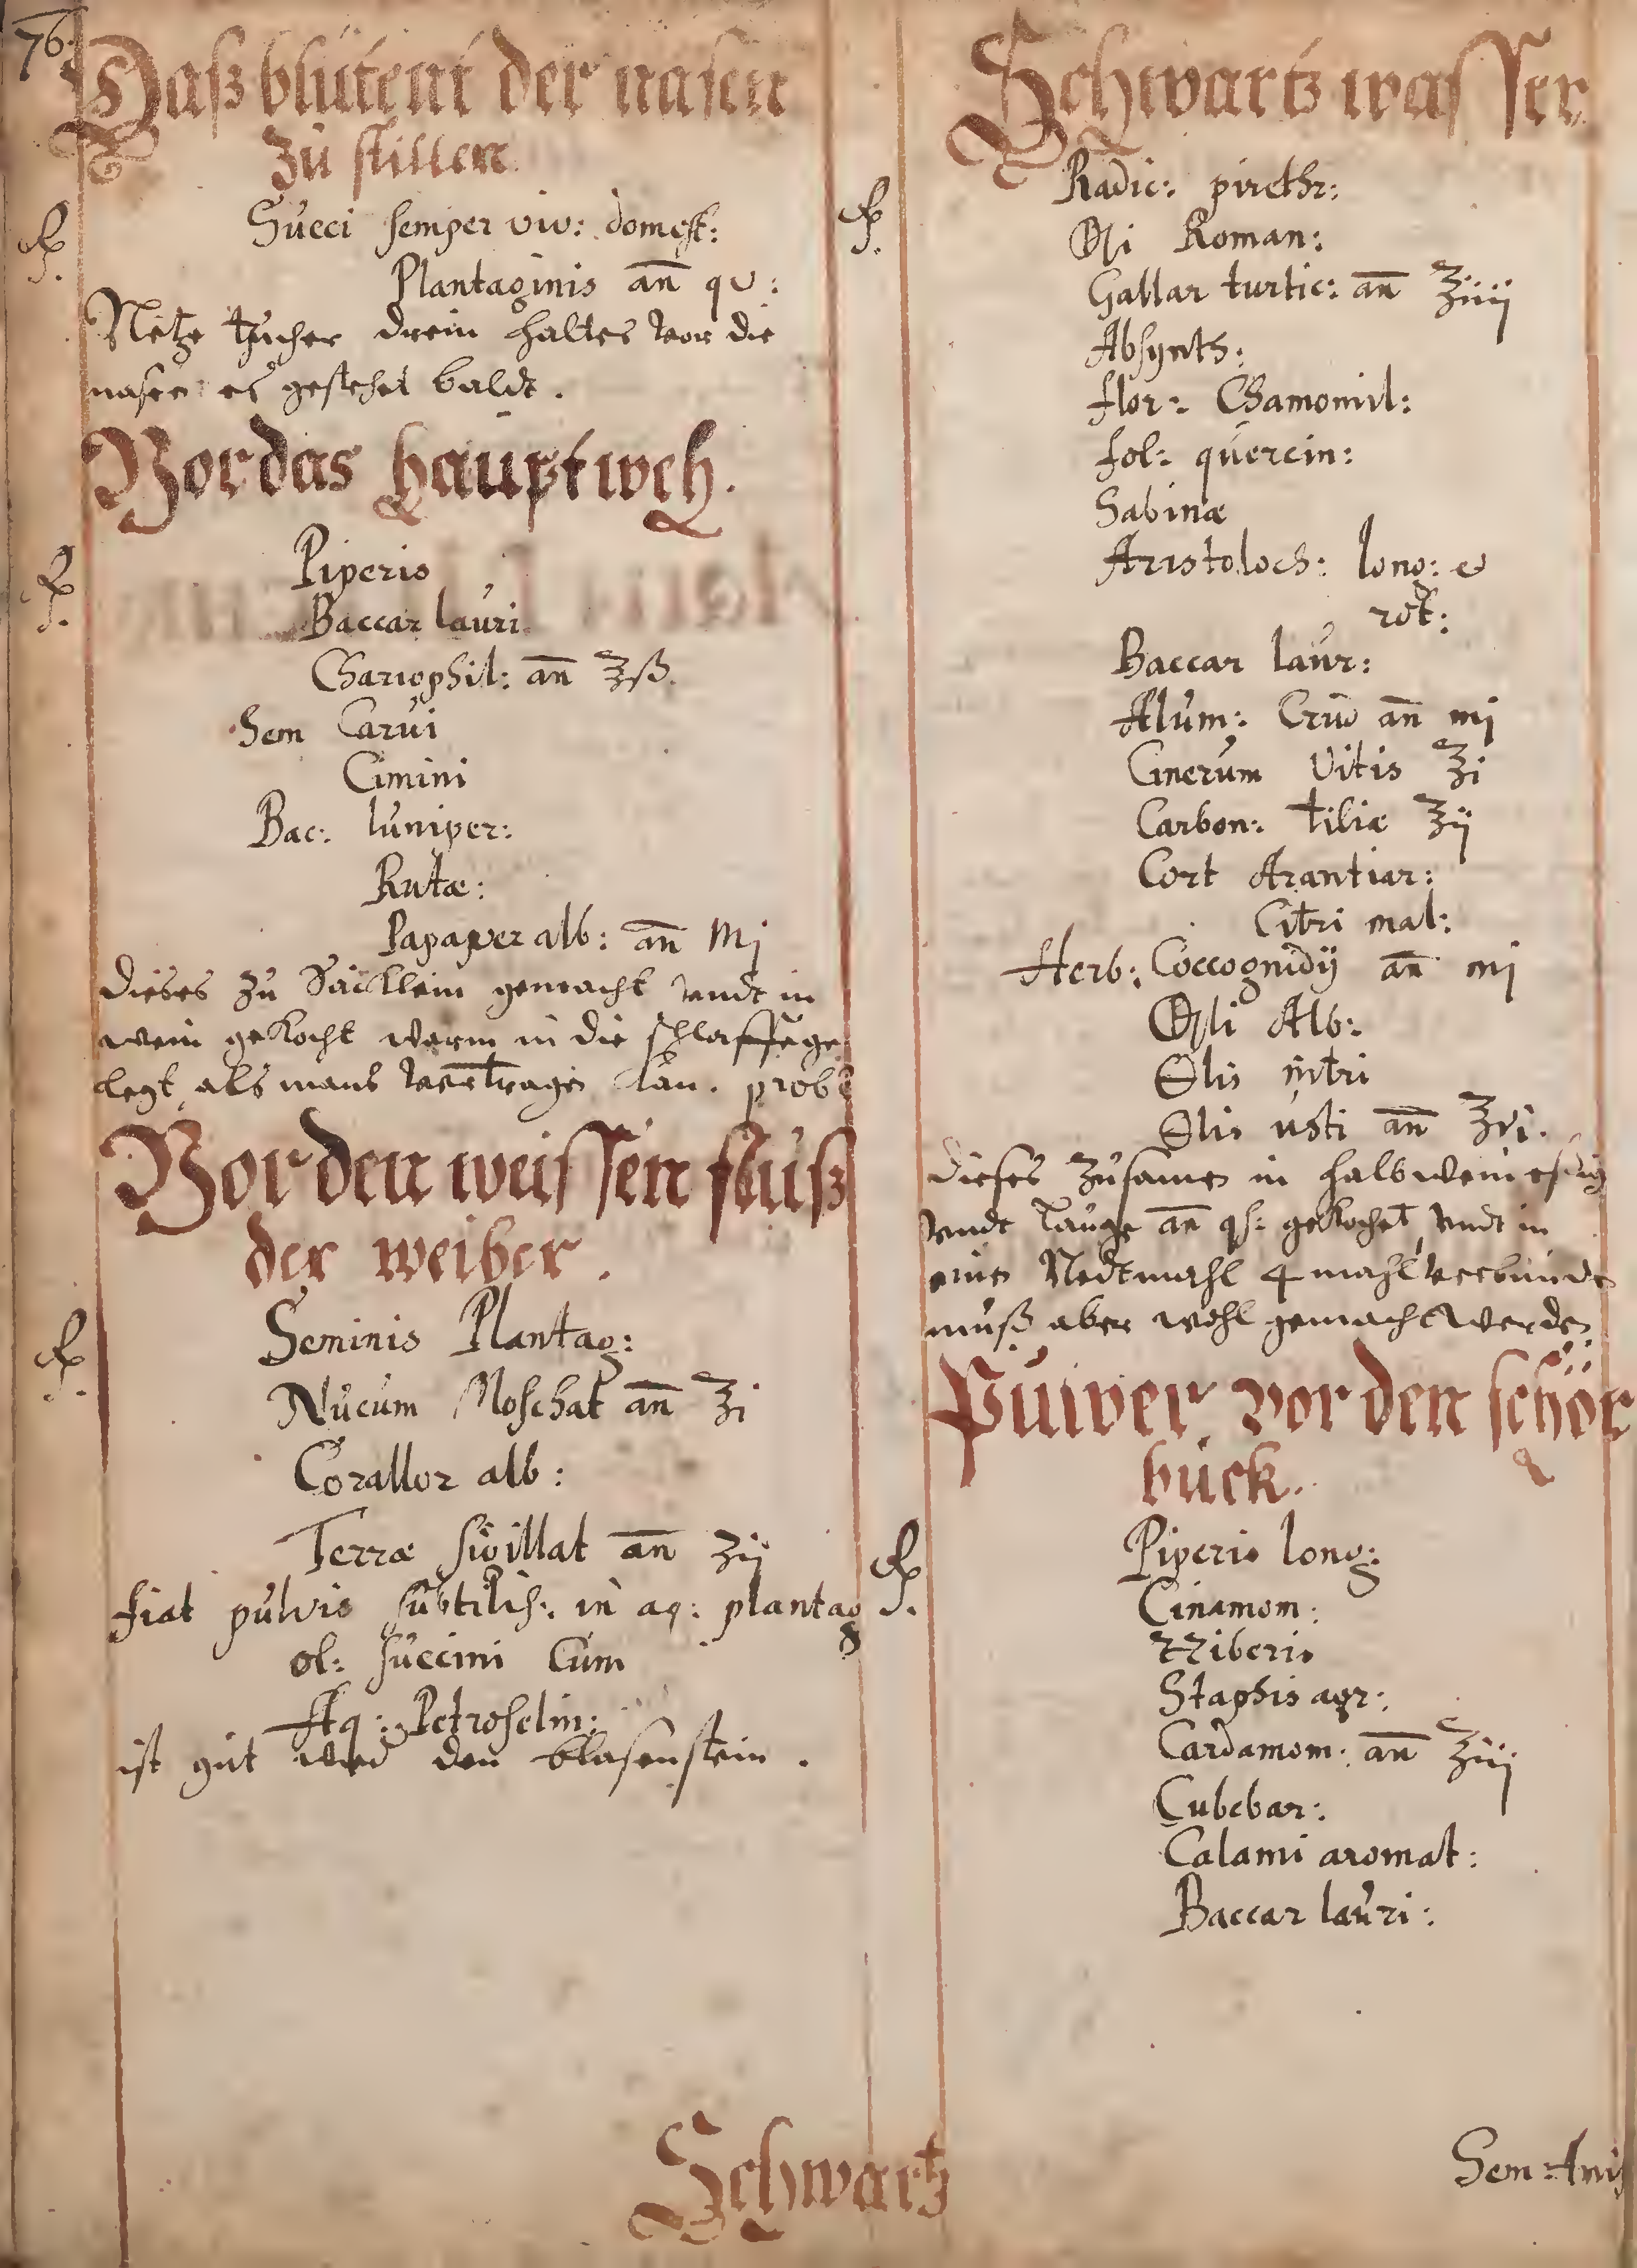 76.
Daß blütent der nasen
zu stillen
Succi semper viv: domest:
Plantaginis an̄ qv:
Netze tücher drein haltes vor die
nasen es gestehet baldt.
Vor das hauptweh.
Piperis
Baccar lauri
Chariophil: an̄ ℥ß.
Sem Carui
Cimini
Bac: Iuniper:
Rutæ:
Papaver alb: an̄ Mj
Dieses zu Säcklein gemacht vndt in
wein gekocht warm in die schlaffe ge
legt, als mans vertragen kan. prob
Vor den weissen fluß
der weiber.
Seminis Plantag:
Nucum Moschat an̄ ʒi
Corallor alb:
Terræ sigillat an̄ ʒij
fiat pulvis subtilis: in aq: plantag
ol: succini Cum
Aq: Petroselin:
ist gut den blasenstein.
Schwartz
Schwartz wasser
Radic: pirethr:
Roman:
Gallar turtic: an̄ ℥iiij
Absynth:
flor: Chamomil:
fol: quercin:
Sabinæ
Aristoloch: long: et
rot:
Baccar laur:
Alum: Crud an̄ mj
Cinerum Vitis ℥i
Carbon: tiliæ ℥ij
Cort Arantiar:
Citri mal:
Herb: Coccognidij an̄ mj
Alb:
nitri
usti an̄ ℥vi.
Dieses zusamen in halb wein essig
vndt lauge an̄ qs: gekochet, vndt in
einer 4 mahl verbunden
muß aber wohl gemacht werden.
Pulver vor den schör
buck.
Piperis long:
Cinamom:
Zziberis
Staphis agr:
Cardamom: an̄ ℥iij
Cubebar:
Calami aromat:
Baccar lauri:
Sem: Anis